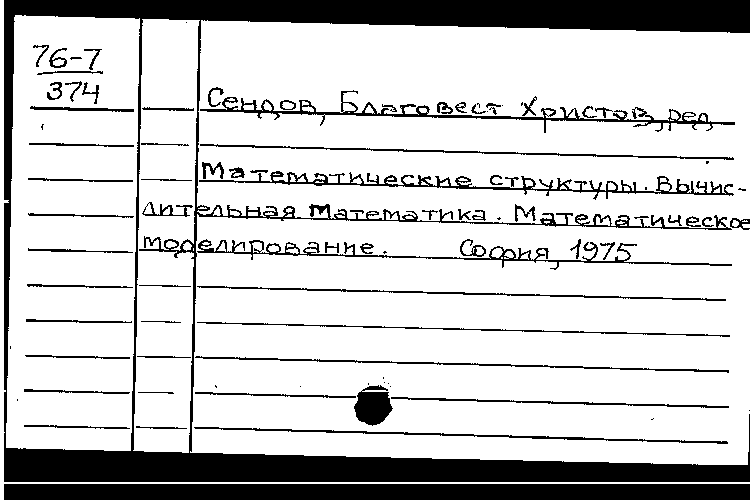 76-7
374
Сендов, Благовест Христов, ред.
Математические структуры. Вычис-
лительная математика. Математическое
моделирование. София, 1975